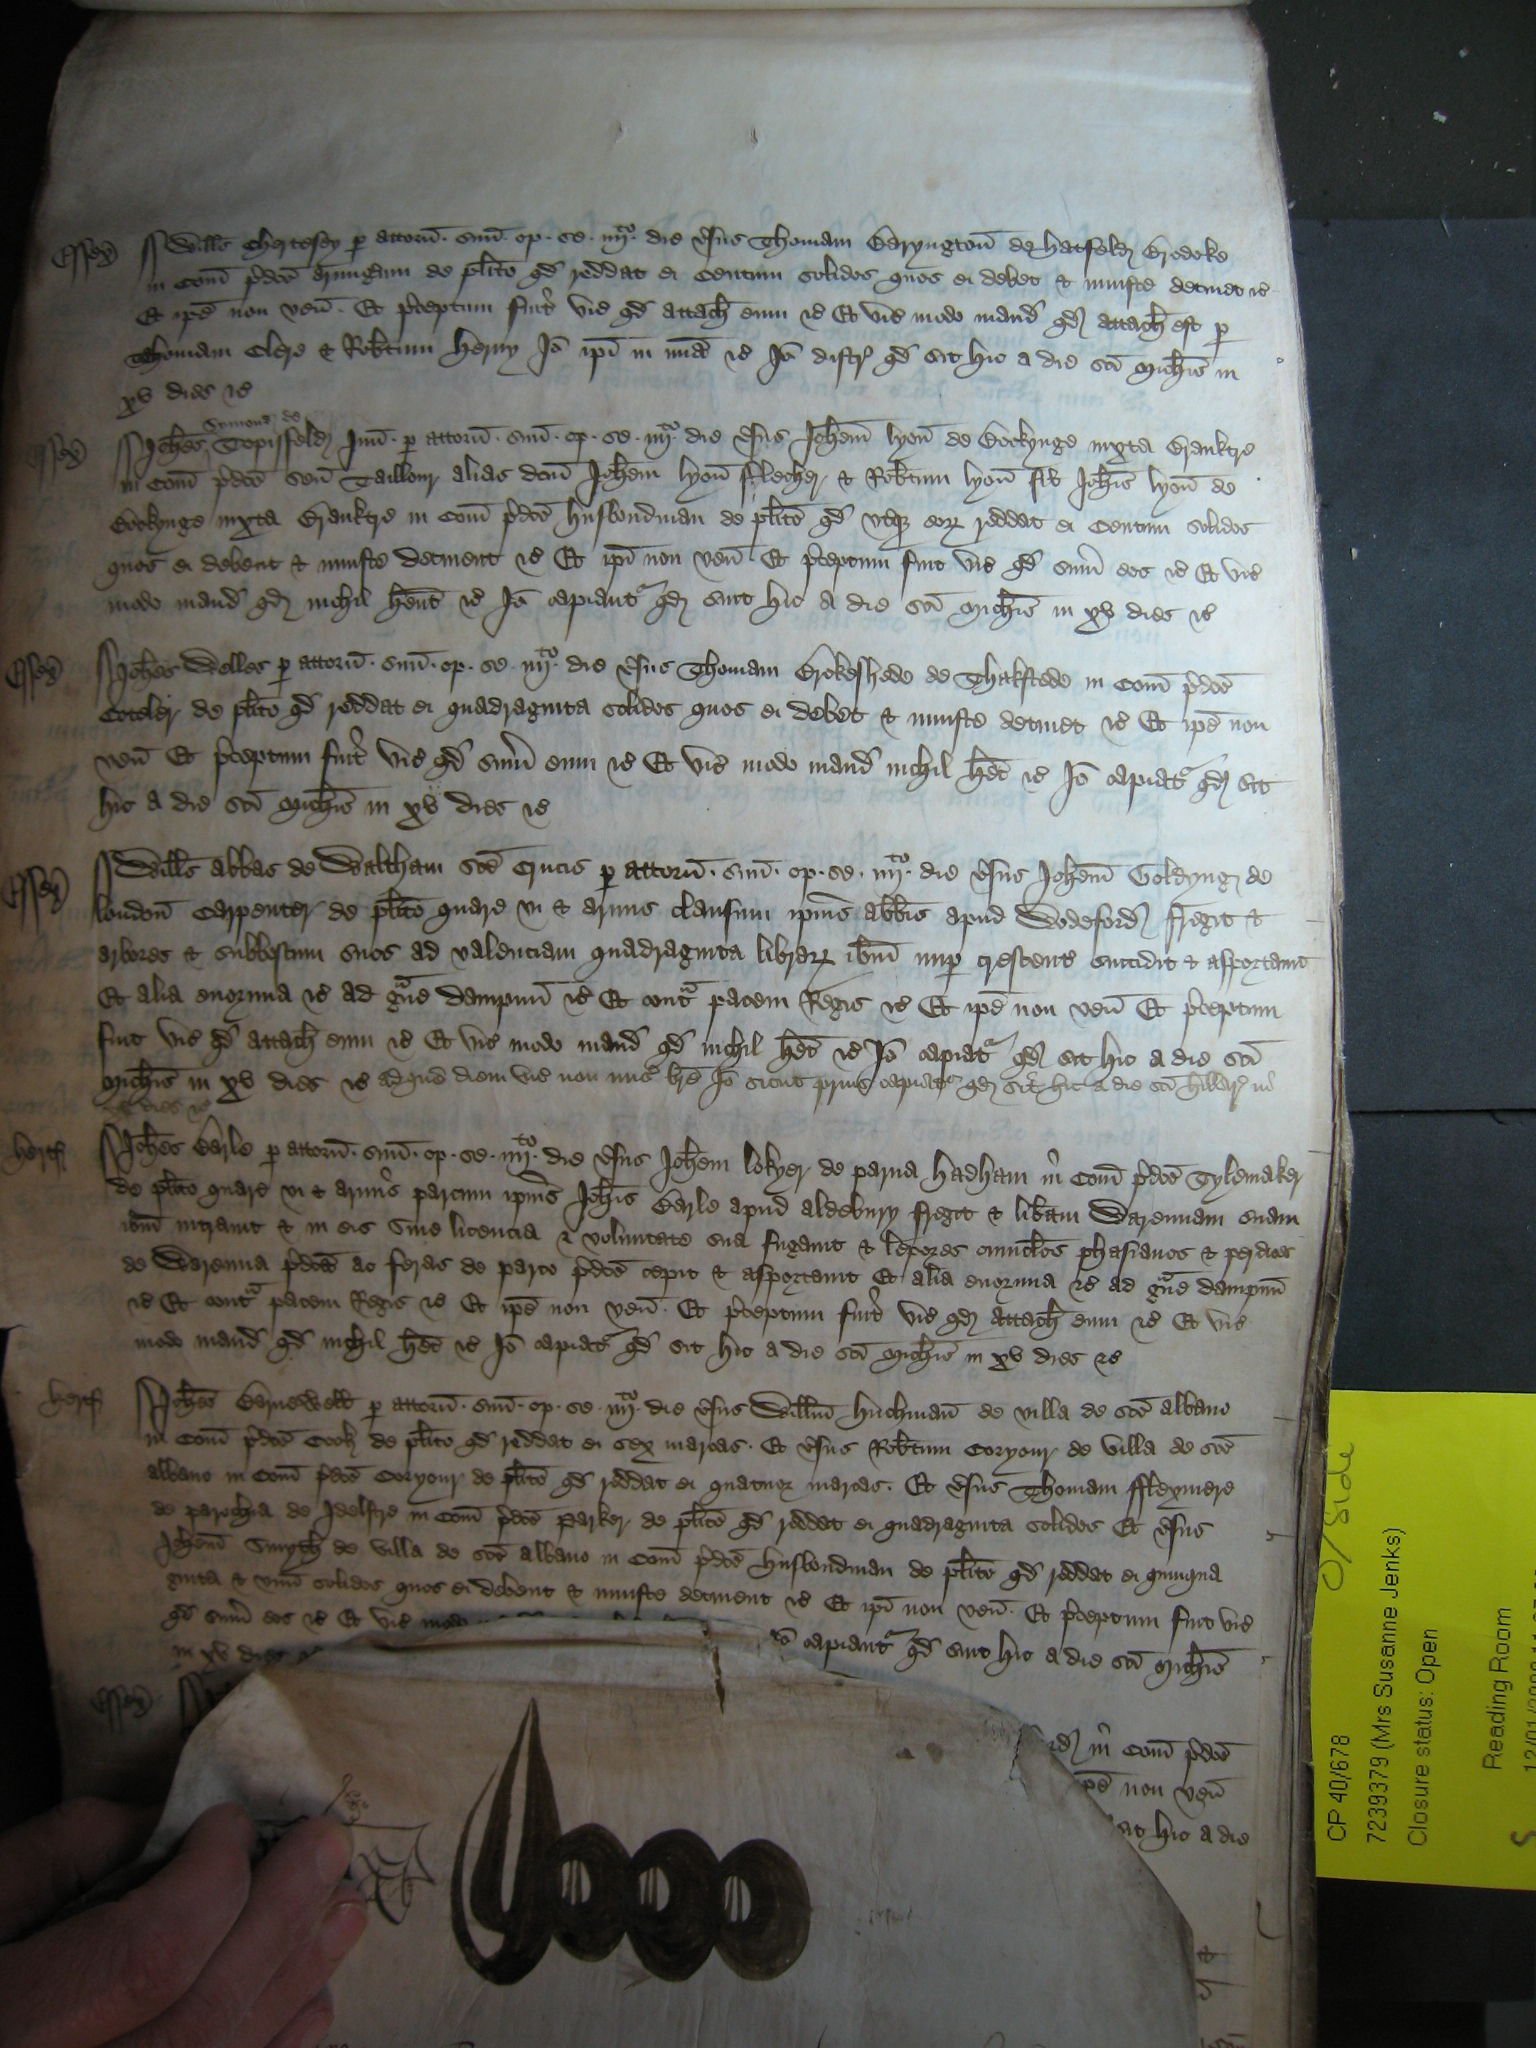 Essex Wills Chertesey p attorn. suu. op. se. iiijto. die vsus Thomam Baryngton de Hatfeld Brodoke
in Com pdco Armigerum de plito qd reddat ei Centum solidos quos ei debet & iniuste detinet &c
Et ipe non ven. Et pceptum fuit vic qd attach eum &c Et vic modo mand qd attach est p
Thomam Clere & Robtum Herny Io ipi in mia &c Io distr qd sit hic a die sci Michis in
xv dies &c
Symond de
Essex Johes Topisfeld Iun. p attorn. suu. op. se. iiijto. die vsus Johem Lyon de Bockynge iuxta Branktre
in Com pdco Taillour alias dcm Johem Lyon Flecher & Robtum Lyon fil Johis Lyon de
Bockynge iuxta Branktre in Com pdco husbondman de plito qd vtqz eor reddat ei Centum solidos
quos ei debent & iniuste detinent &c Et ipi non ven Et pceptum fuit vic qd sum eos &c Et vic
modo mand qd nichil hent &c Io capiant qd sint hic a die sci Michis in xv dies &c
Essex Johes Welles p attorn. suu. op. se. iiijto. die vsus Thomam Brokeshede de Thakstede in Com pdco
Coteler de plito qd reddat ei quadraginta solidos quos ei debet & iniuste detinet &c Et ipe non
ven Et pceptum fuit vic qd sum eum &c Et vic modo mand nichil het &c Io capiat qd sit
hic a die sci Michis in xv dies &c
Essex Wills abbas de Waltham sce Crucis p attorn. suu. op. se. iiijto. die vsus Johem Goldyng de
London Carpenter de plito quare vi & armis clausum ipius abbis apud Wodeford fregit &
arbores & subboscum suos ad valenciam quadraginta librar ibm nup crescent succidit & asportauit
Et alia enormia &c ad gue dampnu &c Et conta pacem Regis &c Et ipe non ven Et pceptum
fuit vic qd attach eum &c Et vic modo mand qd nichil het &c Io capiat qd sit hic a die sci
Michis in xv dies &c ad que diem vic non mis bre Io sicut prius capiat qd sit hic a die sci Hillar in
xv dies &c
Hertf Johes Barle p attorn. suu. op. se. iiijto. die vsus Johem Lokyer de parua Hadham in Com pdco Tylemaker
de plito quare vi & armis parcum ipius Johis Barle apud Aldebury fregit & libam Warennam suam
ibm intrauit & in eis sine licencia & voluntate sua fugauit & lepores cuniclos phasianos & perdices
de Warenna pdca ac feras de parco pdco cepit & asportauit Et alia enormia &c ad gue dampnu
&c Et conta pacem Regis &c Et ipe non ven. Et pceptum fuit vic qd attach eum &c Et vic
modo mand qd nichil het &c Io capiat qd sit hic a die sci Michis in xv dies &c
Hertf Johes Barnewell p attorn. suu. op. se. iiijto. die vsus Willm Huchman de villa de sco Albano
in Com pdco Cook de plito qd reddat ei sex marcas. Et vsus Robtum Coryour de villa de sco
Albano in Com pdco Coryour de plito qd reddat ei quatuor marcas. Et vsus Thomam fflexmere
de parochia de Idelstre in Com pdco Parker de plito qd reddat ei quadraginta solidos Et vsus
Johem Smyth de villa de sco Albano in Com pdco husbondman de plito qd reddat ei quinqua
ginta & vnu solidos quos ei debent & iniuste detinent &c Et ipi non ven. Et pceptum fuit vic
qd sum eos &c Et vic modo Io capiant qd sint hic a die sci Michis
in xv dies &c
Essex in Com pdco
ipe non ven
sit hic a die
CP 40/678
7239379 (Mrs Susanne Jenks)
Closure status: Open
O/Side
Reading Room